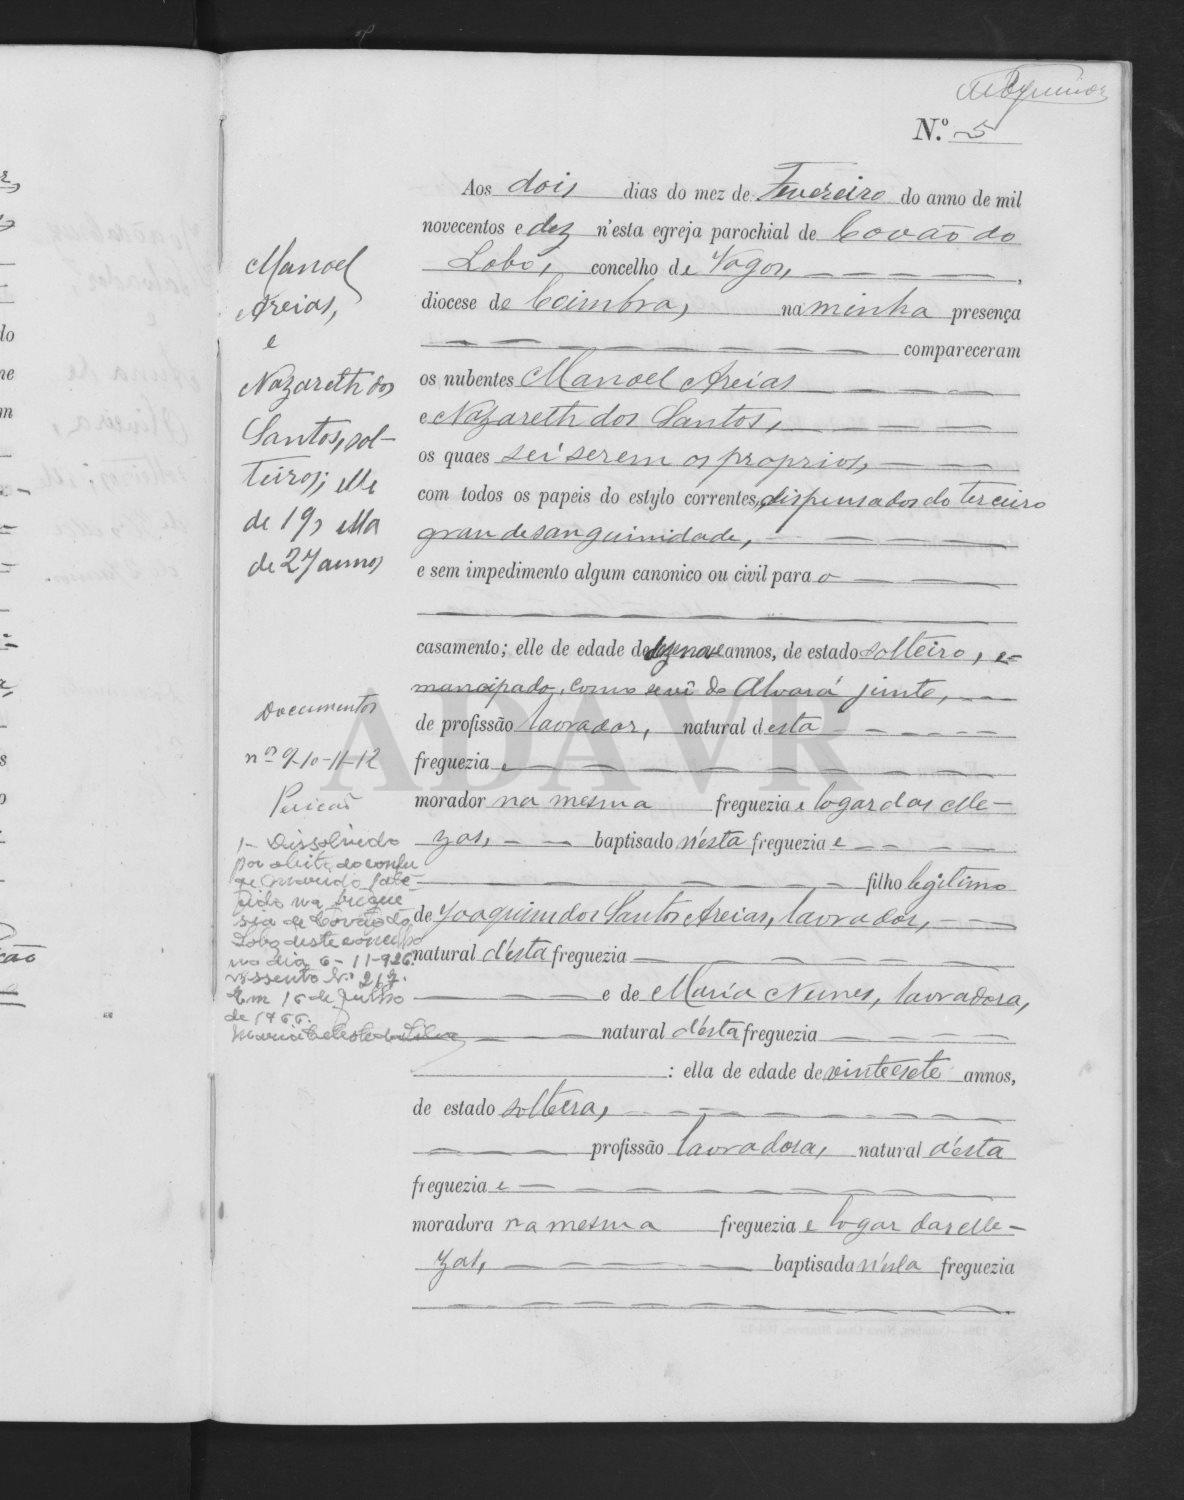 N.º 5
Aos dois dias do mez de Fevereiro do anno de mil
novecentos e dez n'esta egreja parochial de Covão do
Lobo, concelho de Vagos,
diocese de Coimbra, na minha presença
compareceram
os nubentes Manoel Areias
e Nazareth dos Santos,
os quaes sei serem os proprios,
com todos os papeis do estylo correntes, dispensados do terceiro
grau de sanguinidade,
e sem impedimento algum canonico ou civil para o
casamento; elle de edade de dezenove annos, de estado solteiro, e=
mancipado, como se vê do Alvará junto,
de profissão lavrador, natural desta
freguezia e
morador na mesma freguezia e logar das Me-
zas, baptisado n'esta freguezia e
filho legitimo
de Joaquim dos Santos Areias, lavrador,
natural d'esta freguezia
e de Maria Nunes, lavradora,
natural d'esta freguezia
: ella de edade de vinte e sete annos,
de estado solteira,
profissão lavradora, natural d'esta
freguezia e
moradora na mesma freguezia e logar das Me-
zas, baptisada n'esta freguezia
Manoel
Areias,
e
Nazareth dos
Santos, sol-
teiros; elle
de 19, ella
de 27 annos
Documentos
nº 9-10-11-12
1- Dissolvido
por obito do conju
ge marido fale-
cido na fregue
sia de Covão do
Lobo deste concelho
no dia 6-11-926.
Assento Nº 217.
Em 16 de Julho
de 1966.
Maria Celeste da Silva
ADAVR